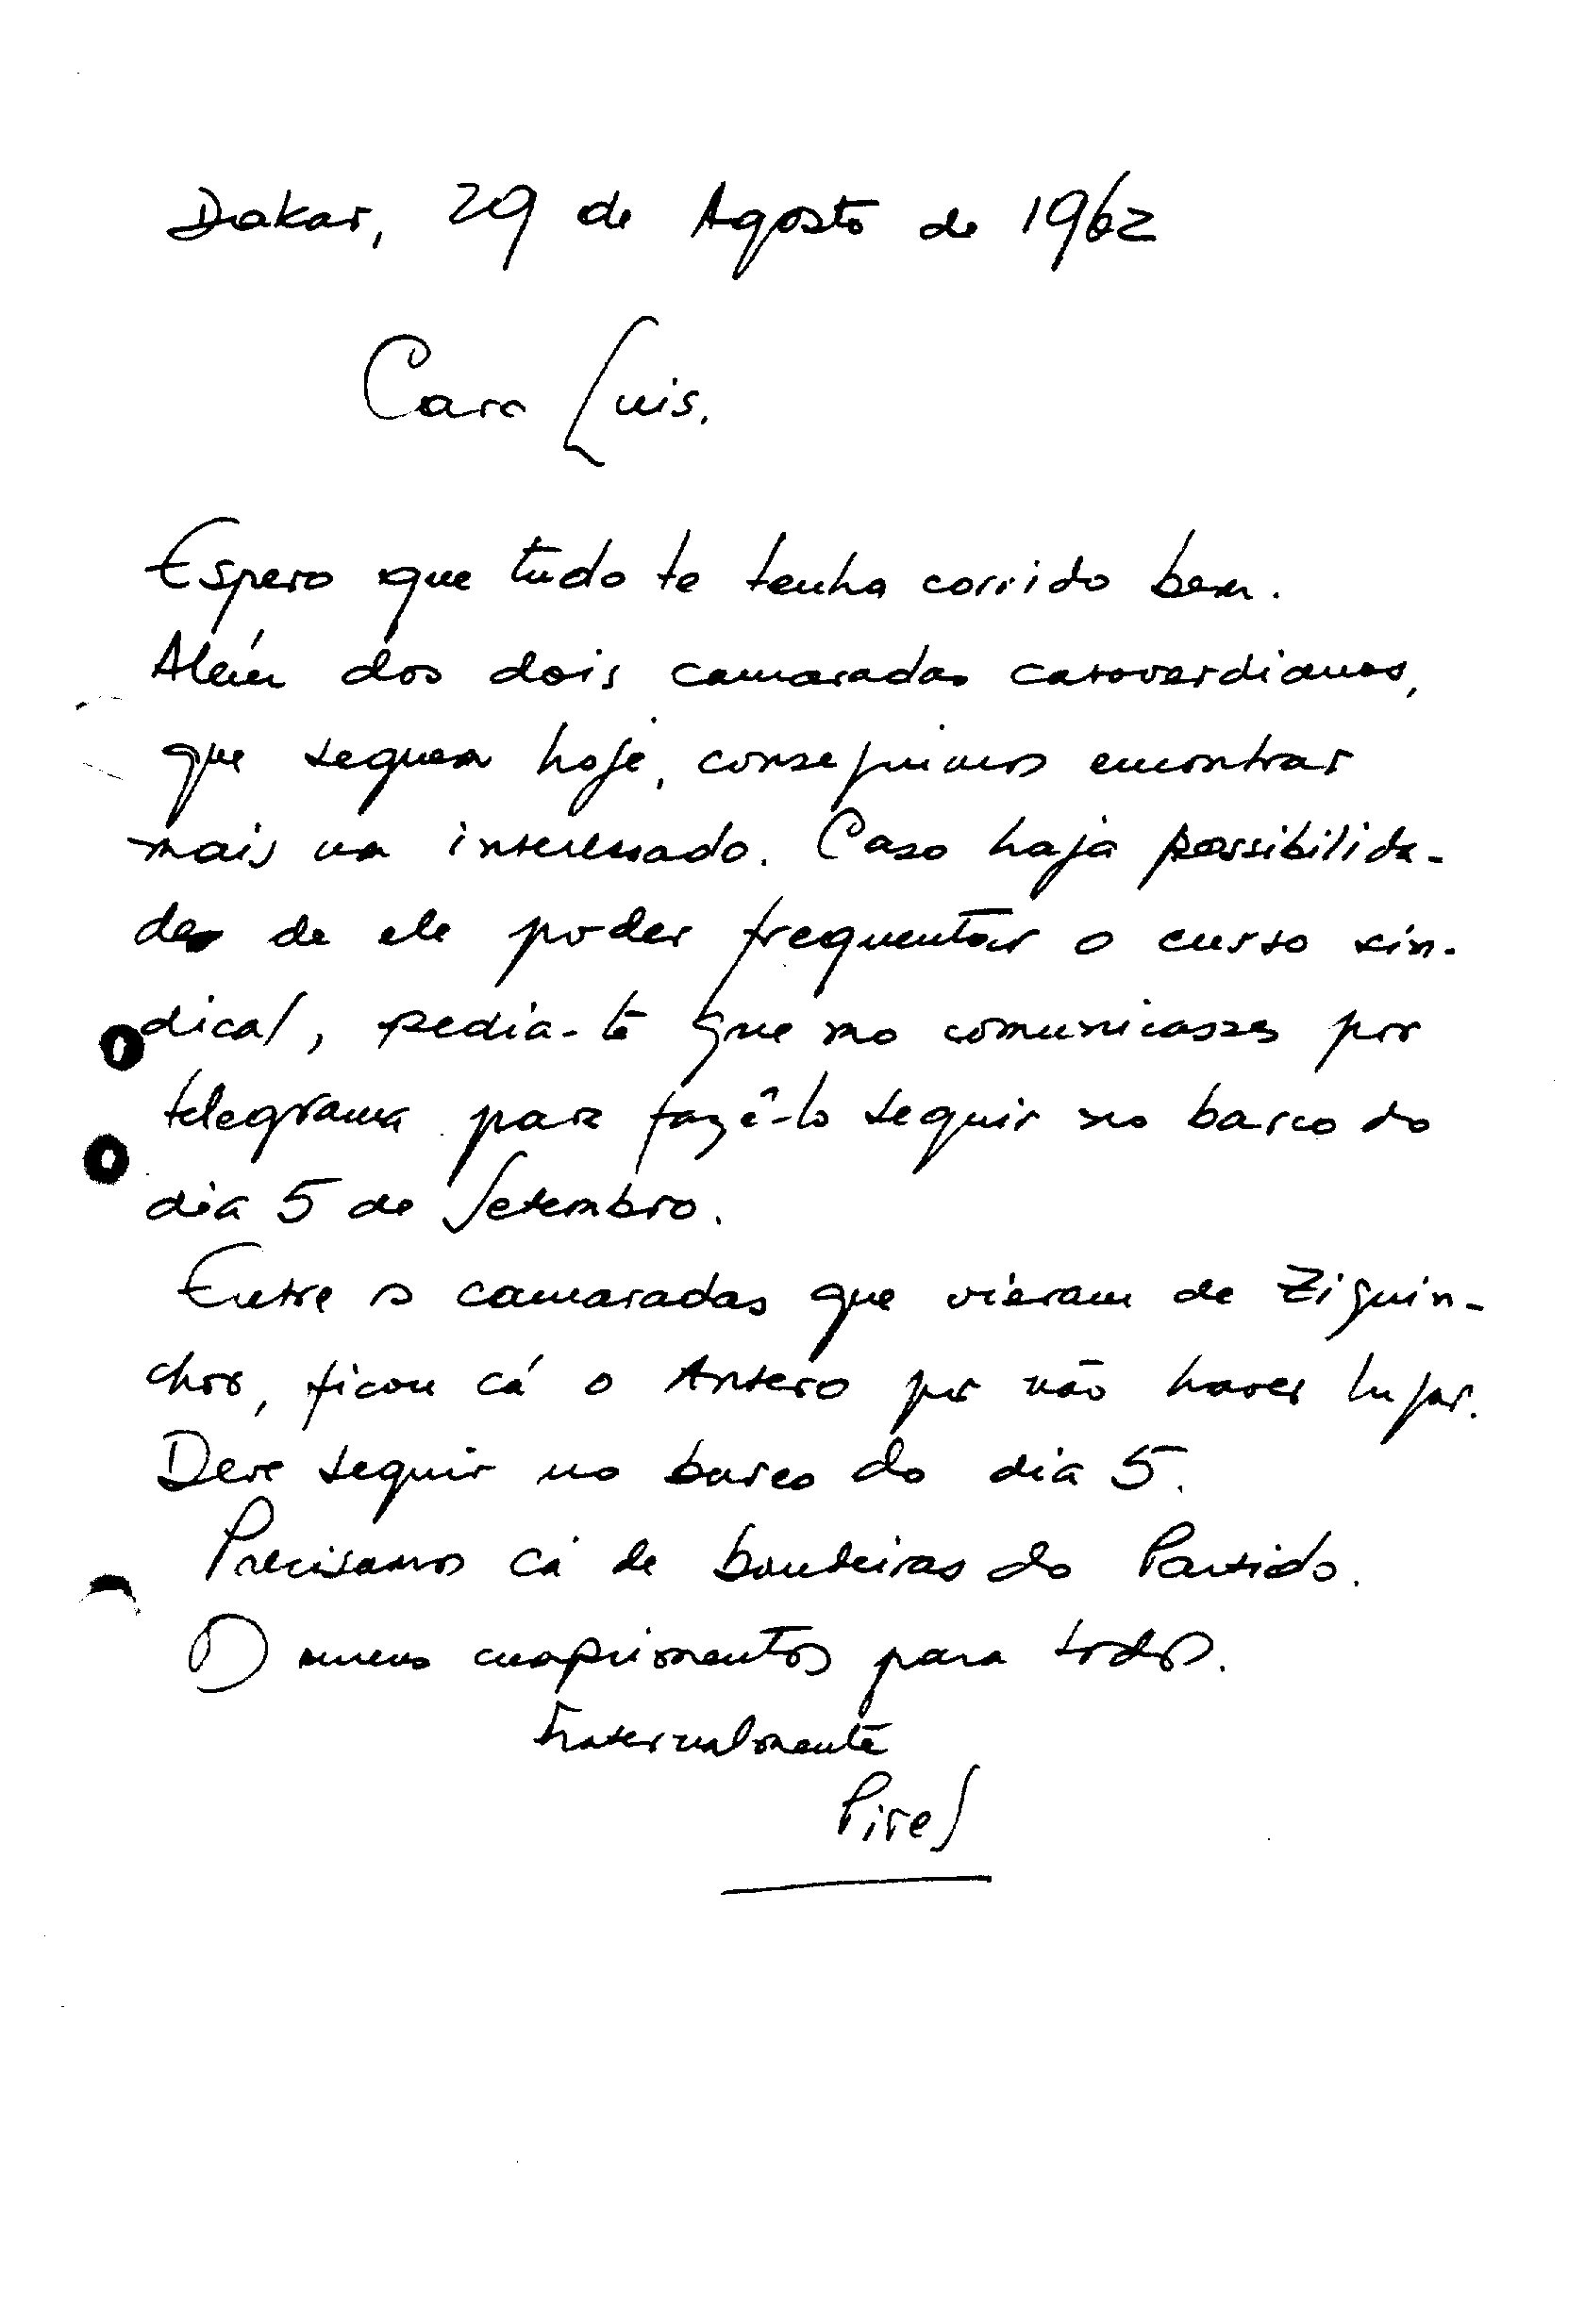 Dakar, 29 de Agosto de 1962
Caro Luis.
Espero que tudo te tenha corrido bem.
Além dos dois camaradas caboverdianos,
que seguem hoje, conseguimos encontrar
mais um interessado. Caso haja possibilida-
de de ele poder frequentar o curso sin-
dical, pedia-te que mo comunicasses por
telegrama para fazê-lo seguir no barco do
dia 5 de Setembro.
Entre os camaradas que vieram de Ziguin-
chor, ficou cá o Antero por não haver lugar.
Deve seguir no barco do dia 5.
Precisamos cá de bandeiras do Partido.
Os meus cumprimentos para todos.
Fraternalmente
Pires